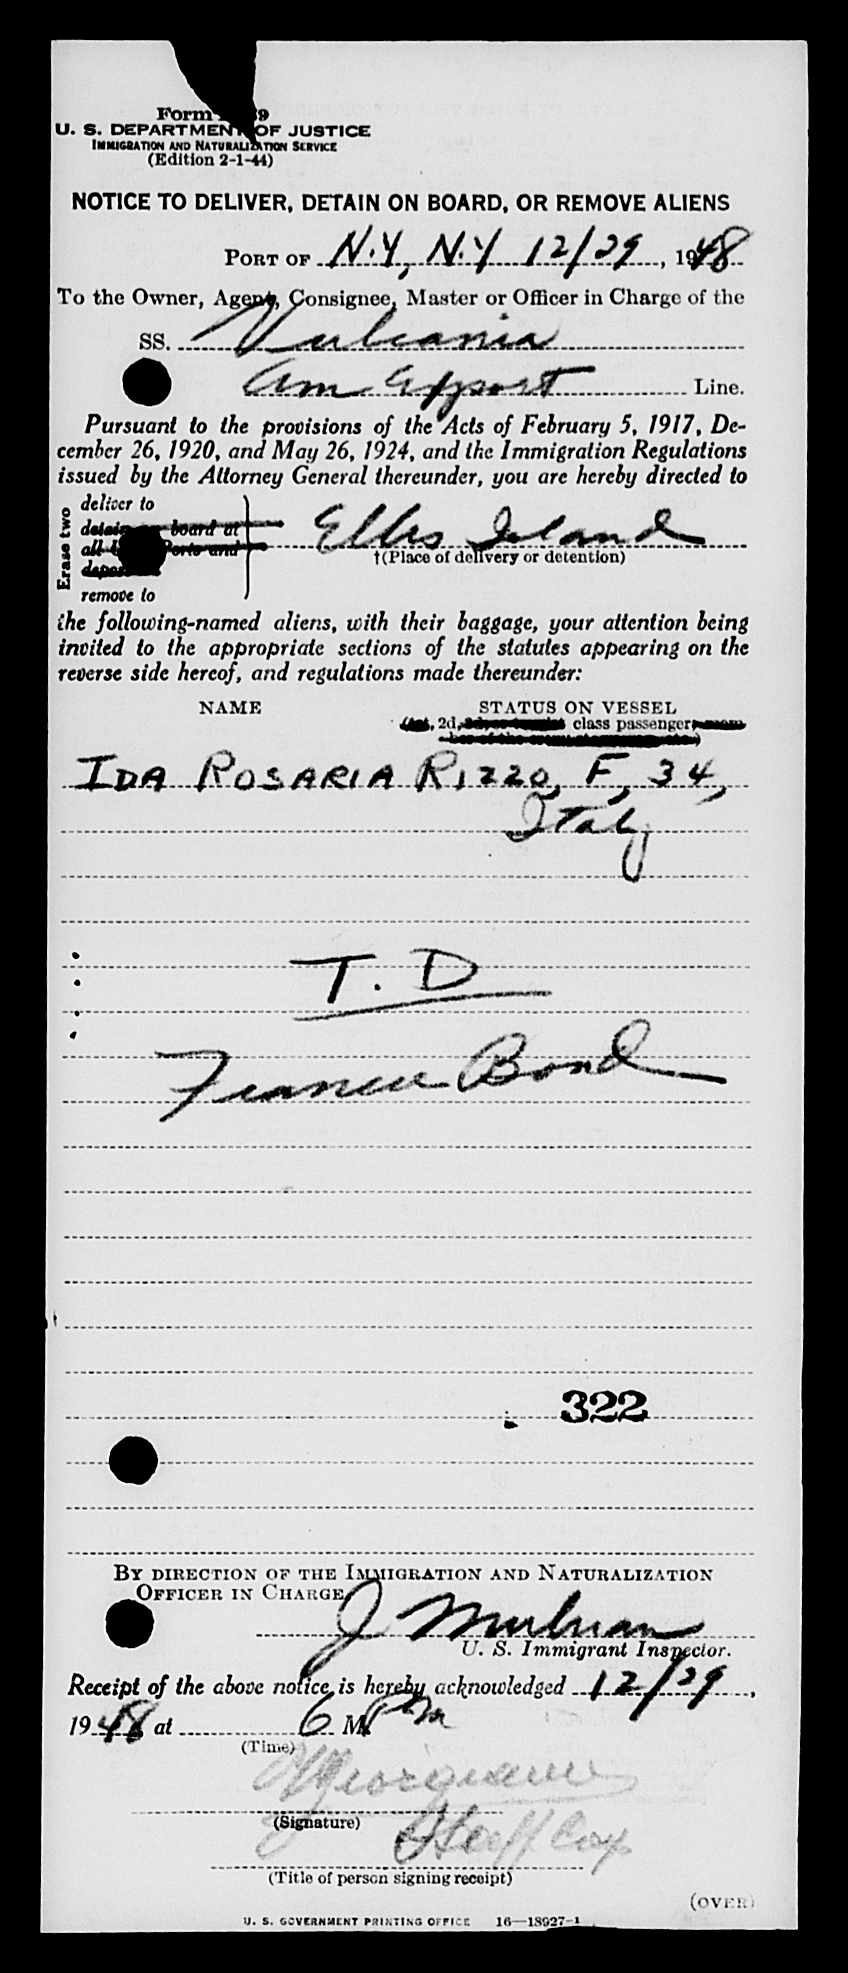 Form 9
U. S. DEPARTMENT OF JUSTICE
IMMIGRATION AND NATURALIZATION SERVICE
(Edition 2-1-44)
NOTICE TO DELIVER, DETAIN ON BOARD, OR REMOVE ALIENS
PORT OF N.Y, N.Y 12/29, 1948
To the Owner, Agent, Consignee, Master or Officer in Charge of the
SS. Vulcania
Am Export Line.
Pursuant to the provisions of the Acts of February 5, 1917, De-
cember 26, 1920, and May 26, 1924, and the Immigration Regulations
issued by the Attorney General thereunder, you are hereby directed to
Erase two
deliver to
board at
Ports and
remove to
Ellis Island
†(Place of delivery or detention)
the following-named aliens, with their baggage, your attention being
invited to the appropriate sections of the statutes appearing on the
reverse side hereof, and regulations made thereunder:
NAME STATUS ON VESSEL
2d, class passenger
IDA ROSARIA RIZZO, F, 34,
Italy
T. D
Fiancee Bond
322
BY DIRECTION OF THE IMMIGRATION AND NATURALIZATION
OFFICER IN CHARGE
J
U. S. Immigrant Inspector.
Receipt of the above notice is hereby acknowledged 12/29,
1948 at 6 PM
(Time)
(Signature)
Staff Cap
(Title of person signing receipt)
(OVER)
U. S. GOVERNMENT PRINTING OFFICE 16—18927-1